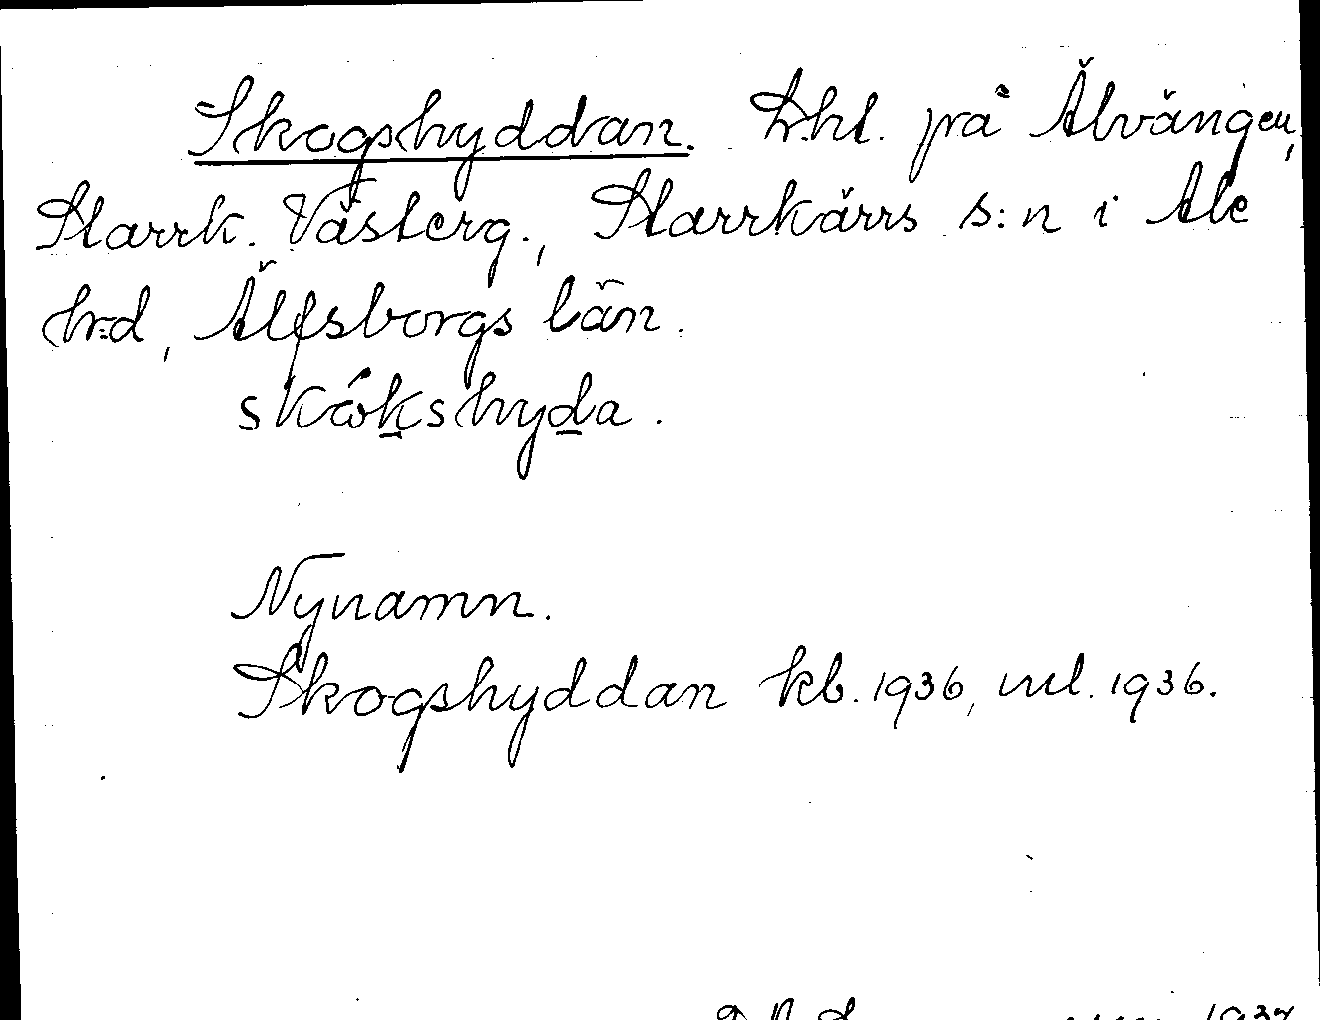 Skogshyddan. Lht. på Älvängen,
Starrk. Västerg., Starrkärrs s:n i Ale
hrd, Älfsborgs län.
skókshyda.
Nynamn.
Skogshyddan kb. 1936, ml. 1936.
1937